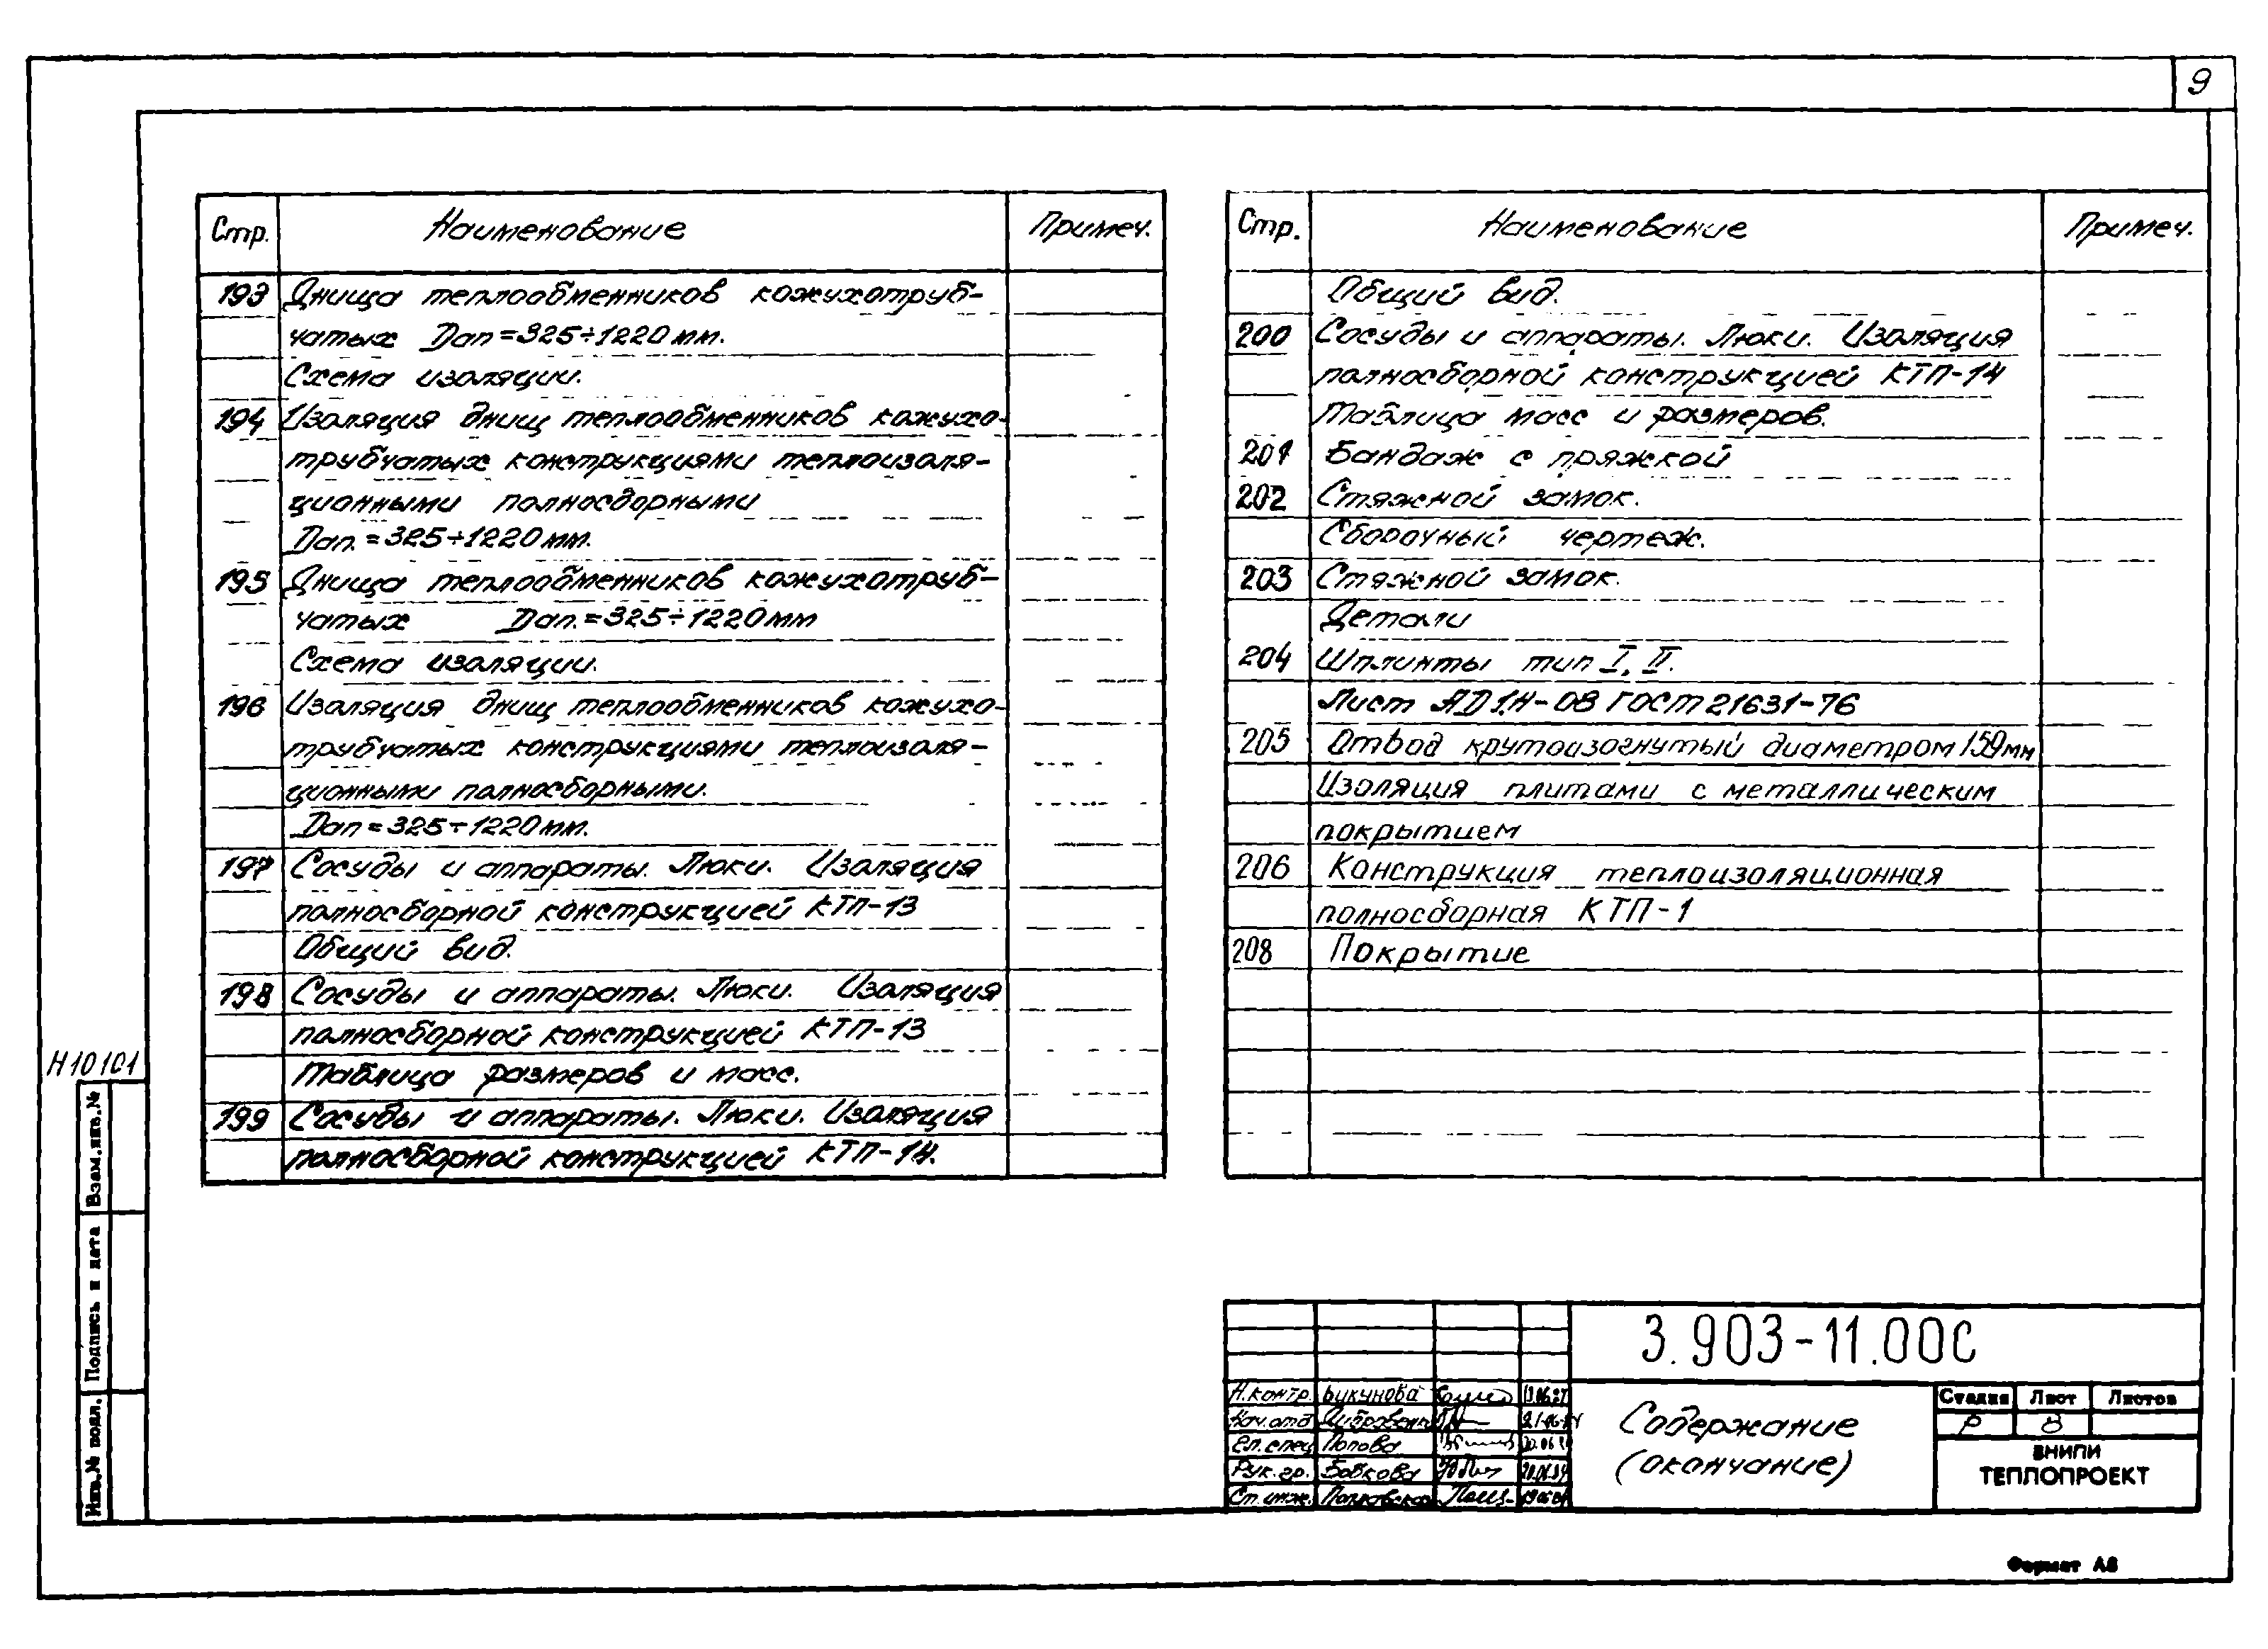 9
Стр. Наименование Примеч.
193 Днища теплообменников кожухотруб-
чатых Dап=325÷1220мм.
Схема изоляции.
194 Изоляция днищ теплообменников кожухо-
трубчатых конструкциями теплоизоля-
ционными полносборными
Dап.=325÷1220мм.
195 Днища теплообменников кожухотруб-
чатых Dап.=325÷1220мм
Схема изоляции.
196 Изоляция днищ теплообменников кожухо-
трубчатых конструкциями теплоизоля-
ционными полносборными.
Dап=325÷1220мм.
197 Сосуды и аппараты. Люки. Изоляция
полносборной конструкцией КТП-13
Общий вид.
198 Сосуды и аппараты. Люки. Изоляция
полносборной конструкцией КТП-13
Таблица размеров и масс.
199 Сосуды и аппараты. Люки. Изоляция
полносборной конструкцией КТП-14.
Стр. Наименование Примеч.
Общий вид.
200 Сосуды и аппараты. Люки. Изоляция
полносборной конструкцией КТП-14
Таблица масс и размеров.
201 Бандаж с пряжкой
202 Стяжной замок.
Сборочный чертеж.
203 Стяжной замок.
Детали
204 Шплинты тип I, II.
Лист АД1.Н-08 ГОСТ 21631-76
205 Отвод крутоизогнутый диаметром 159мм
Изоляция плитами с металлическим
покрытием
206 Конструкция теплоизоляционная
полносборная КТП-1
208 Покрытие
Н10101
Взам.инв.№
Подпись и дата
Инв.№ подл.
3.903-11.00С
Н.контр. Букунова
Нач.отд
Гл.спец Попова
Рук.гр. Бобкова
Ст.инж.
Содержание
(окончание)
Стадия Лист Листов
Р 8
ВНИПИ
ТЕПЛОПРОЕКТ
Формат